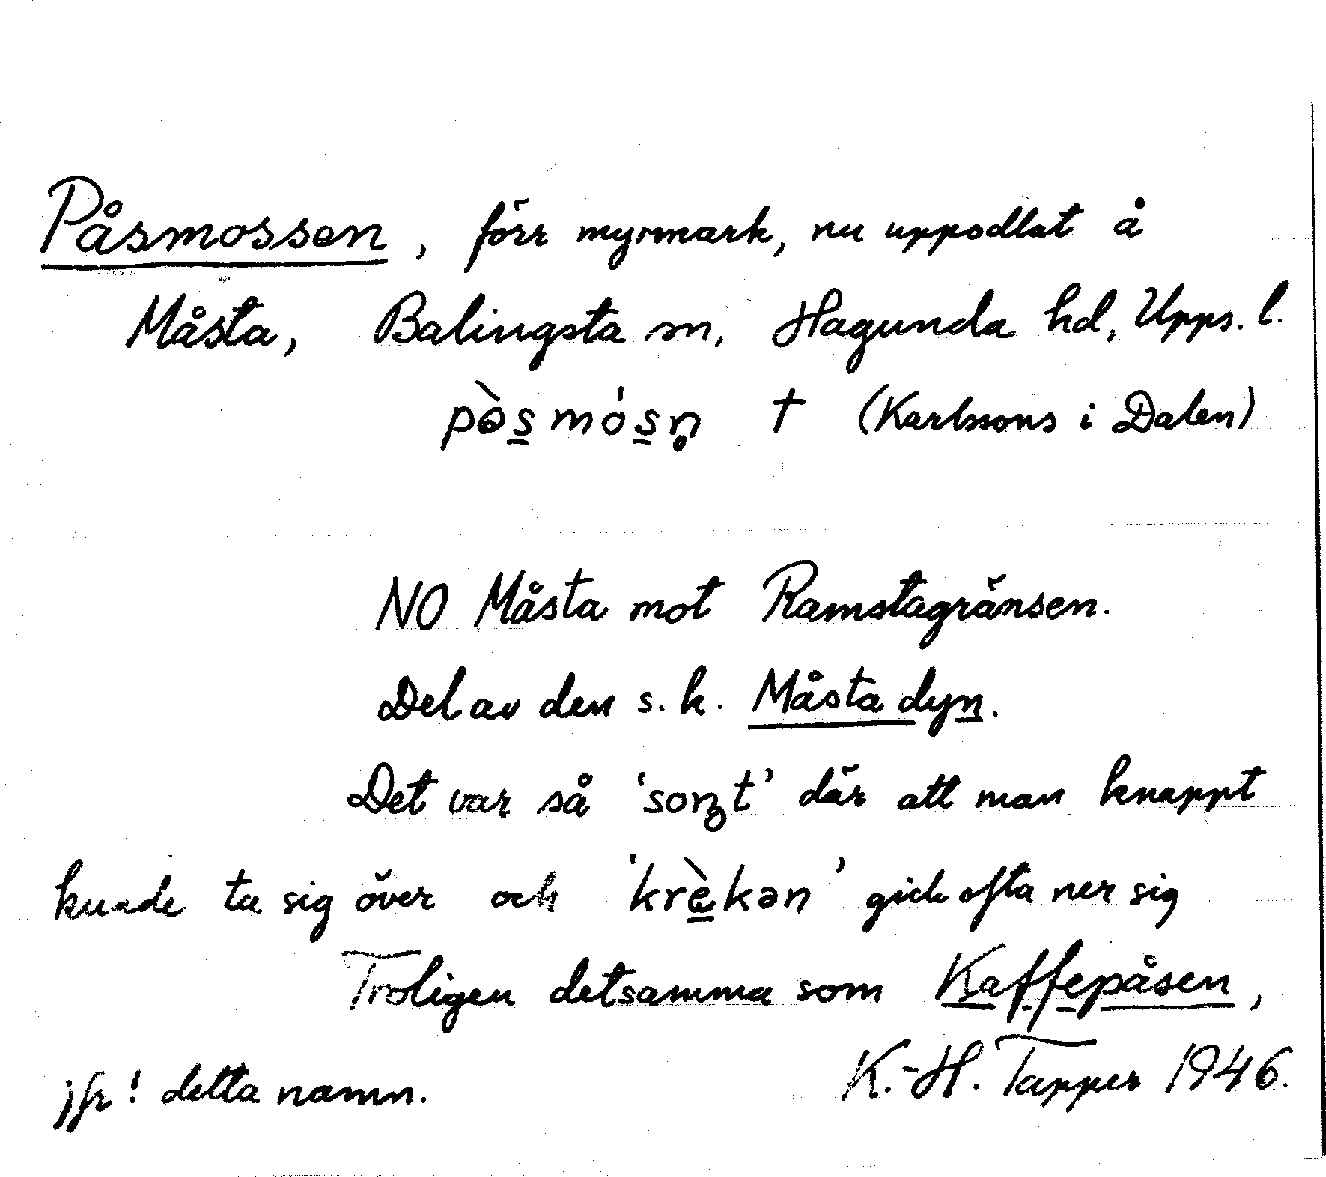 Påsmossen, förr myrmark, nu uppodlat å
Måsta, Balingsta sn, Hagunda hd, Upps. l.
pɵ̀s̲ mós̲n̥ † (Karlssons i Dalen)
NO Måsta mot Ramstagränsen.
Del av den s. k. Måsta dyn.
Det var så 'soʀt' där att man knappt
kunde ta sig över och 'krè̲kən' gick ofta ner sig
Troligen detsamma som Kaffepåsen,
jfr! detta namn. K.-H. Tapper 1946.